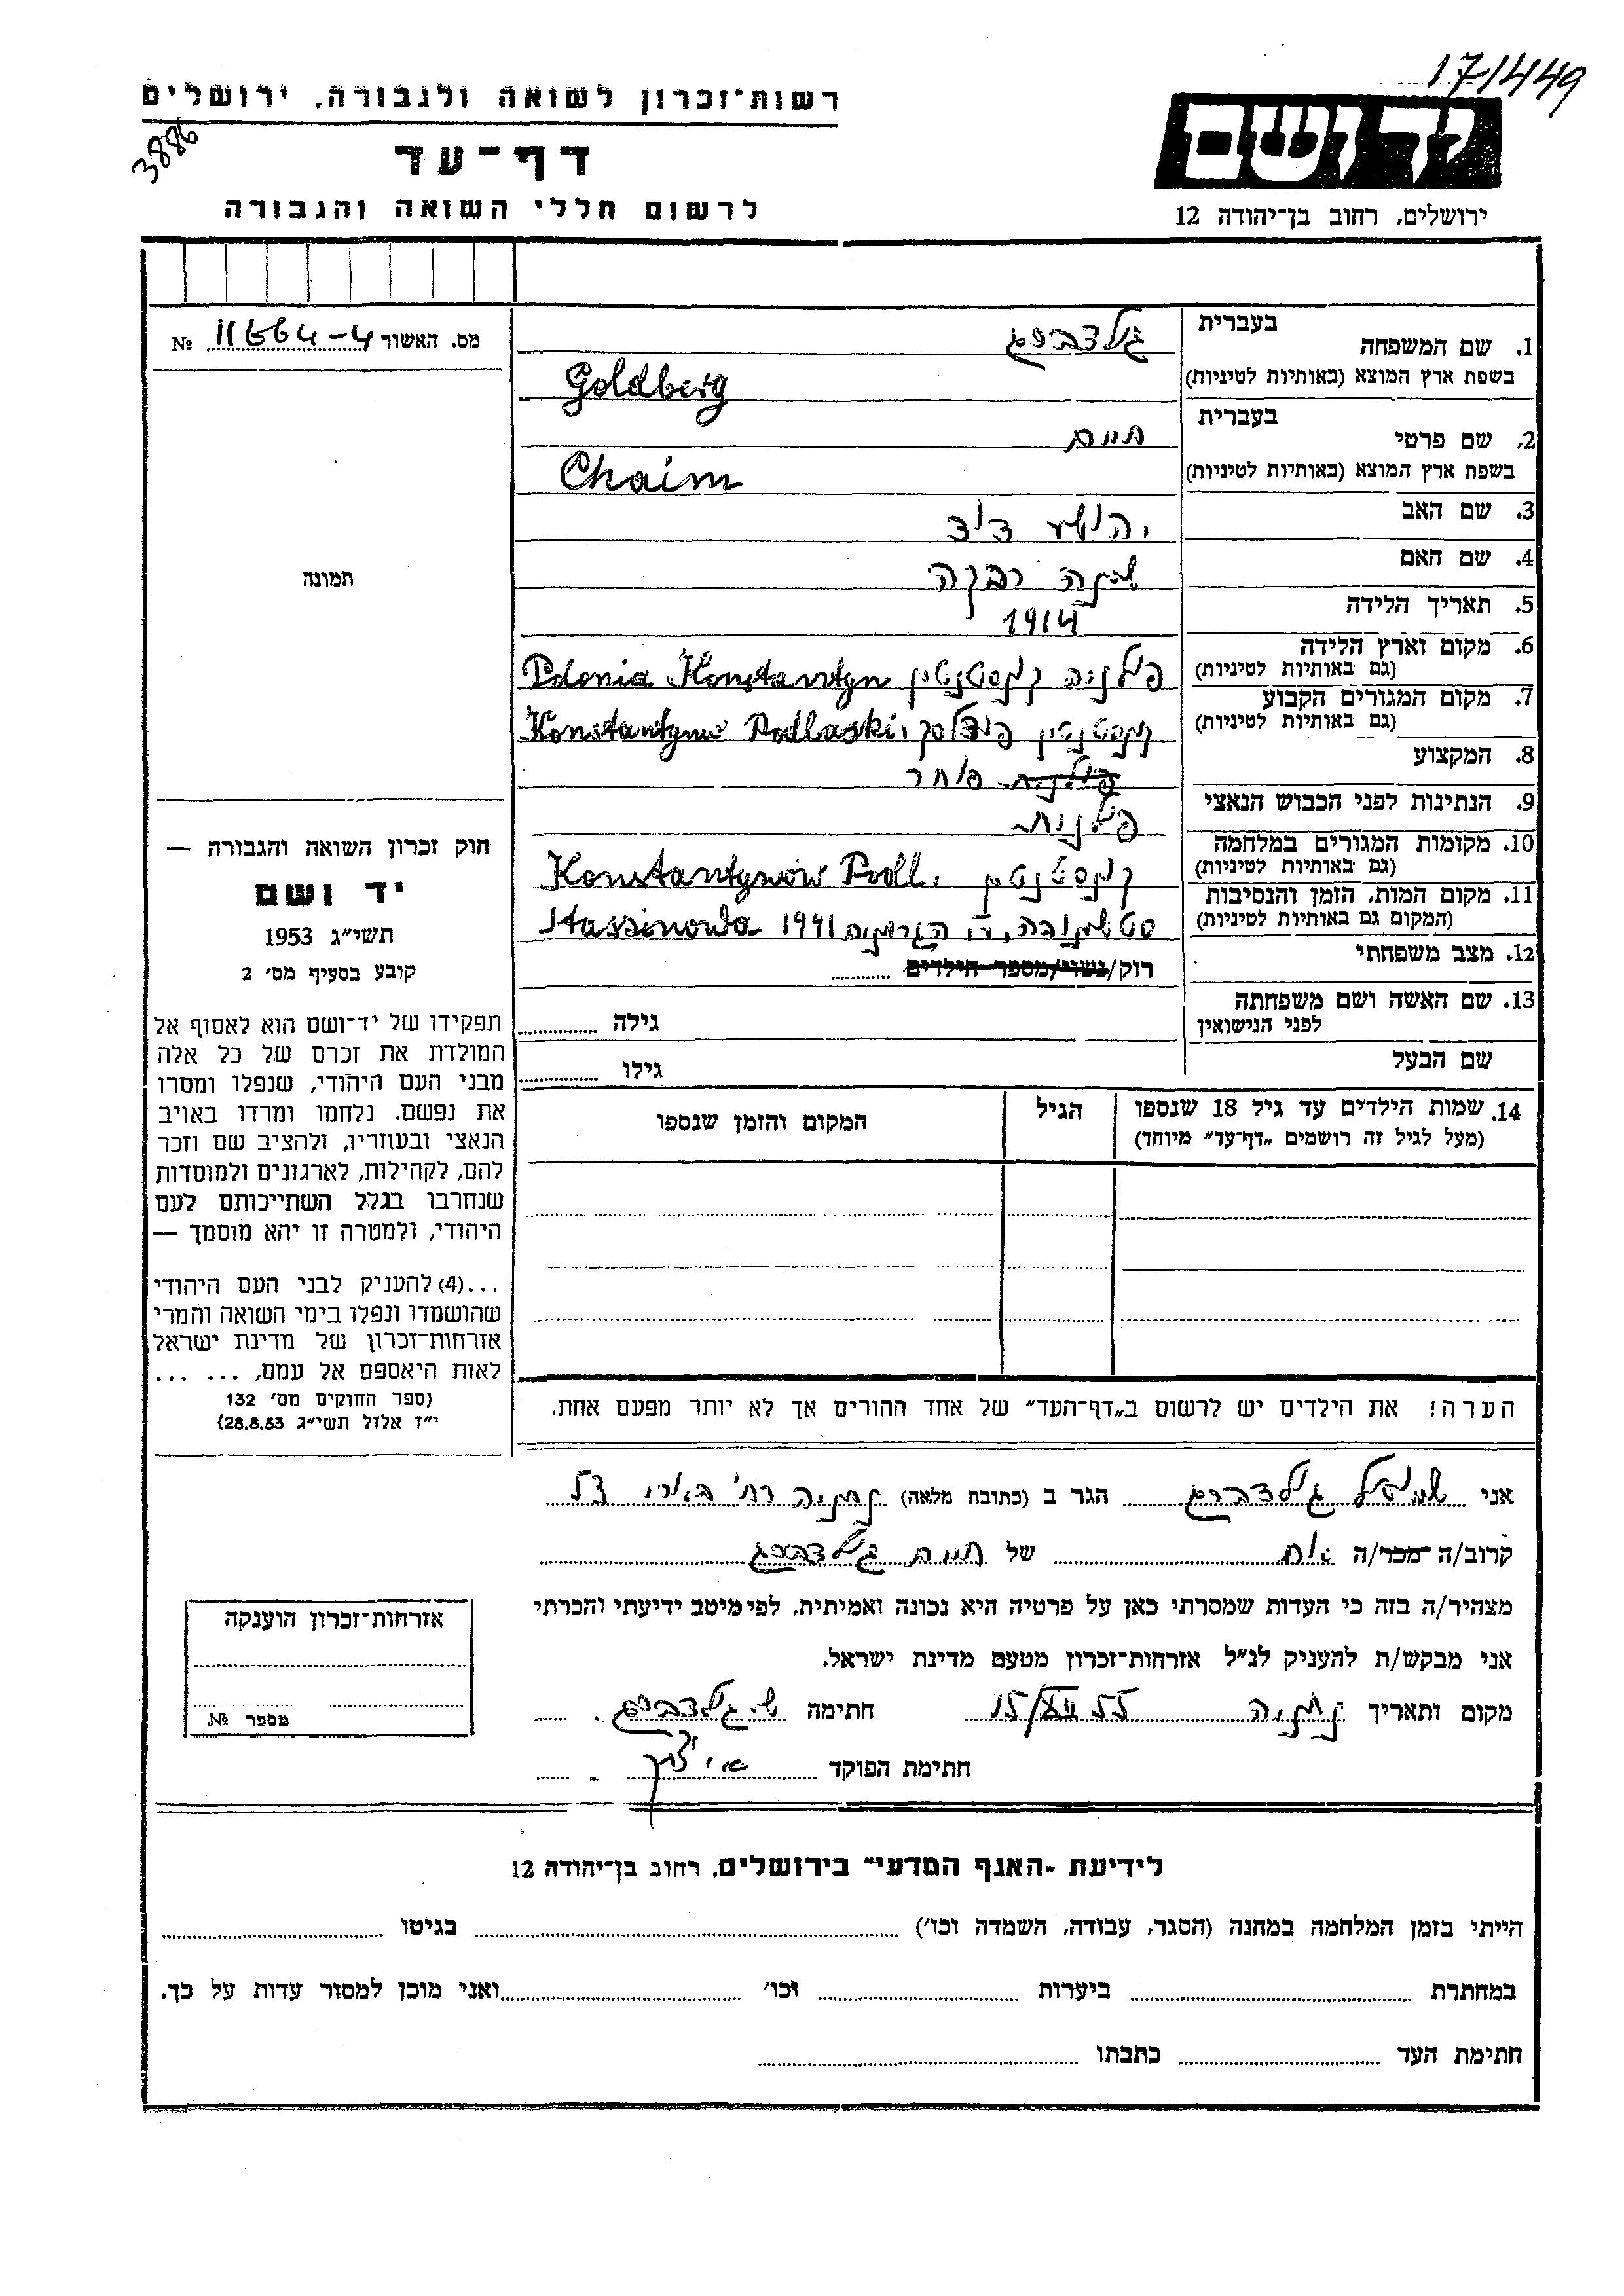 171449
רשות־זכרון לשואה ולגבורה, ירושלים
3886
דף־עד
לרשום חללי השואה והגבורה
יד ושם
ירושלים, רחוב בן־יהודה 12
מס. האשור № 11664-4
תמונה
1. שם המשפחה בעברית גולדברג
בשפת ארץ המוצא (באותיות לטיניות) Goldberg
2. שם פרטי בעברית חיים
בשפת ארץ המוצא (באותיות לטיניות) Chaim
3. שם האב יהושע דוד
4. שם האם רבקה
5. תאריך הלידה 1914
6. מקום וארץ הלידה (גם באותיות לטיניות) פולניה קונסטנטין Polonia Konstantyn
7. מקום המגורים הקבוע (גם באותיות לטיניות) קונסטנטין פודלסקי Konstantynow Podlaski
8. המקצוע סוחר
9. הנתינות לפני הכבוש הנאצי פולנית
10. מקומות המגורים במלחמה (גם באותיות לטיניות) קונסטנטין Konstantynów Podl.
11. מקום המות, הזמן והנסיבות (המקום גם באותיות לטיניות) ע"י הגרמנים 1941
12. מצב משפחתי רוק/נשוי/מספר הילדים
13. שם האשה ושם משפחתה לפני הנישואין גילה
שם הבעל גילו
14. שמות הילדים עד גיל 18 שנספו
(מעל לגיל זה רושמים „דף־עד” מיוחד)
הגיל
המקום והזמן שנספו
הערה! את הילדים יש לרשום ב„דף־העד” של אחד ההורים אך לא יותר מפעם אחת.
חוק זכרון השואה והגבורה —
יד ושם
תשי״ג 1953
קובע בסעיף מס׳ 2
תפקידו של יד־ושם הוא לאסוף אל
המולדת את זכרם של כל אלה
מבני העם היהודי, שנפלו ומסרו
את נפשם. נלחמו ומרדו באויב
הנאצי ובעוזריו, ולהציב שם וזכר
להם, לקהילות, לארגונים ולמוסדות
שנחרבו בגלל השתייכותם לעם
היהודי, ולמטרה זו יהא מוסמך —
...(4) להעניק לבני העם היהודי
שהושמדו ונפלו בימי השואה והמרי
אזרחות־זכרון של מדינת ישראל
לאות היאספם אל עמם, ... ...
(ספר החוקים מס׳ 132
י״ז אלול תשי״ג 28.8.53)
אני שמואל גולדברג הגר ב (כתובת מלאה) נתניה רח׳ 53
קרוב/ה מכר/ה אח של חיים גולדברג
מצהיר/ה בזה כי העדות שמסרתי כאן על פרטיה היא נכונה ואמיתית, לפי מיטב ידיעתי והכרתי
אני מבקש/ת להעניק לנ״ל אזרחות־זכרון מטעם מדינת ישראל.
מקום ותאריך נתניה 15/XII 55 חתימה ש. גולדברג
חתימת הפוקד
אזרחות־זכרון הוענקה
מספר №
לידיעת „האגף המדעי” בירושלים, רחוב בן־יהודה 12
הייתי בזמן המלחמה במחנה (הסגר, עבודה, השמדה וכו׳) בגיטו
במחתרת ביערות וכו׳ ואני מוכן למסור עדות על כך.
חתימת העד כתבתו